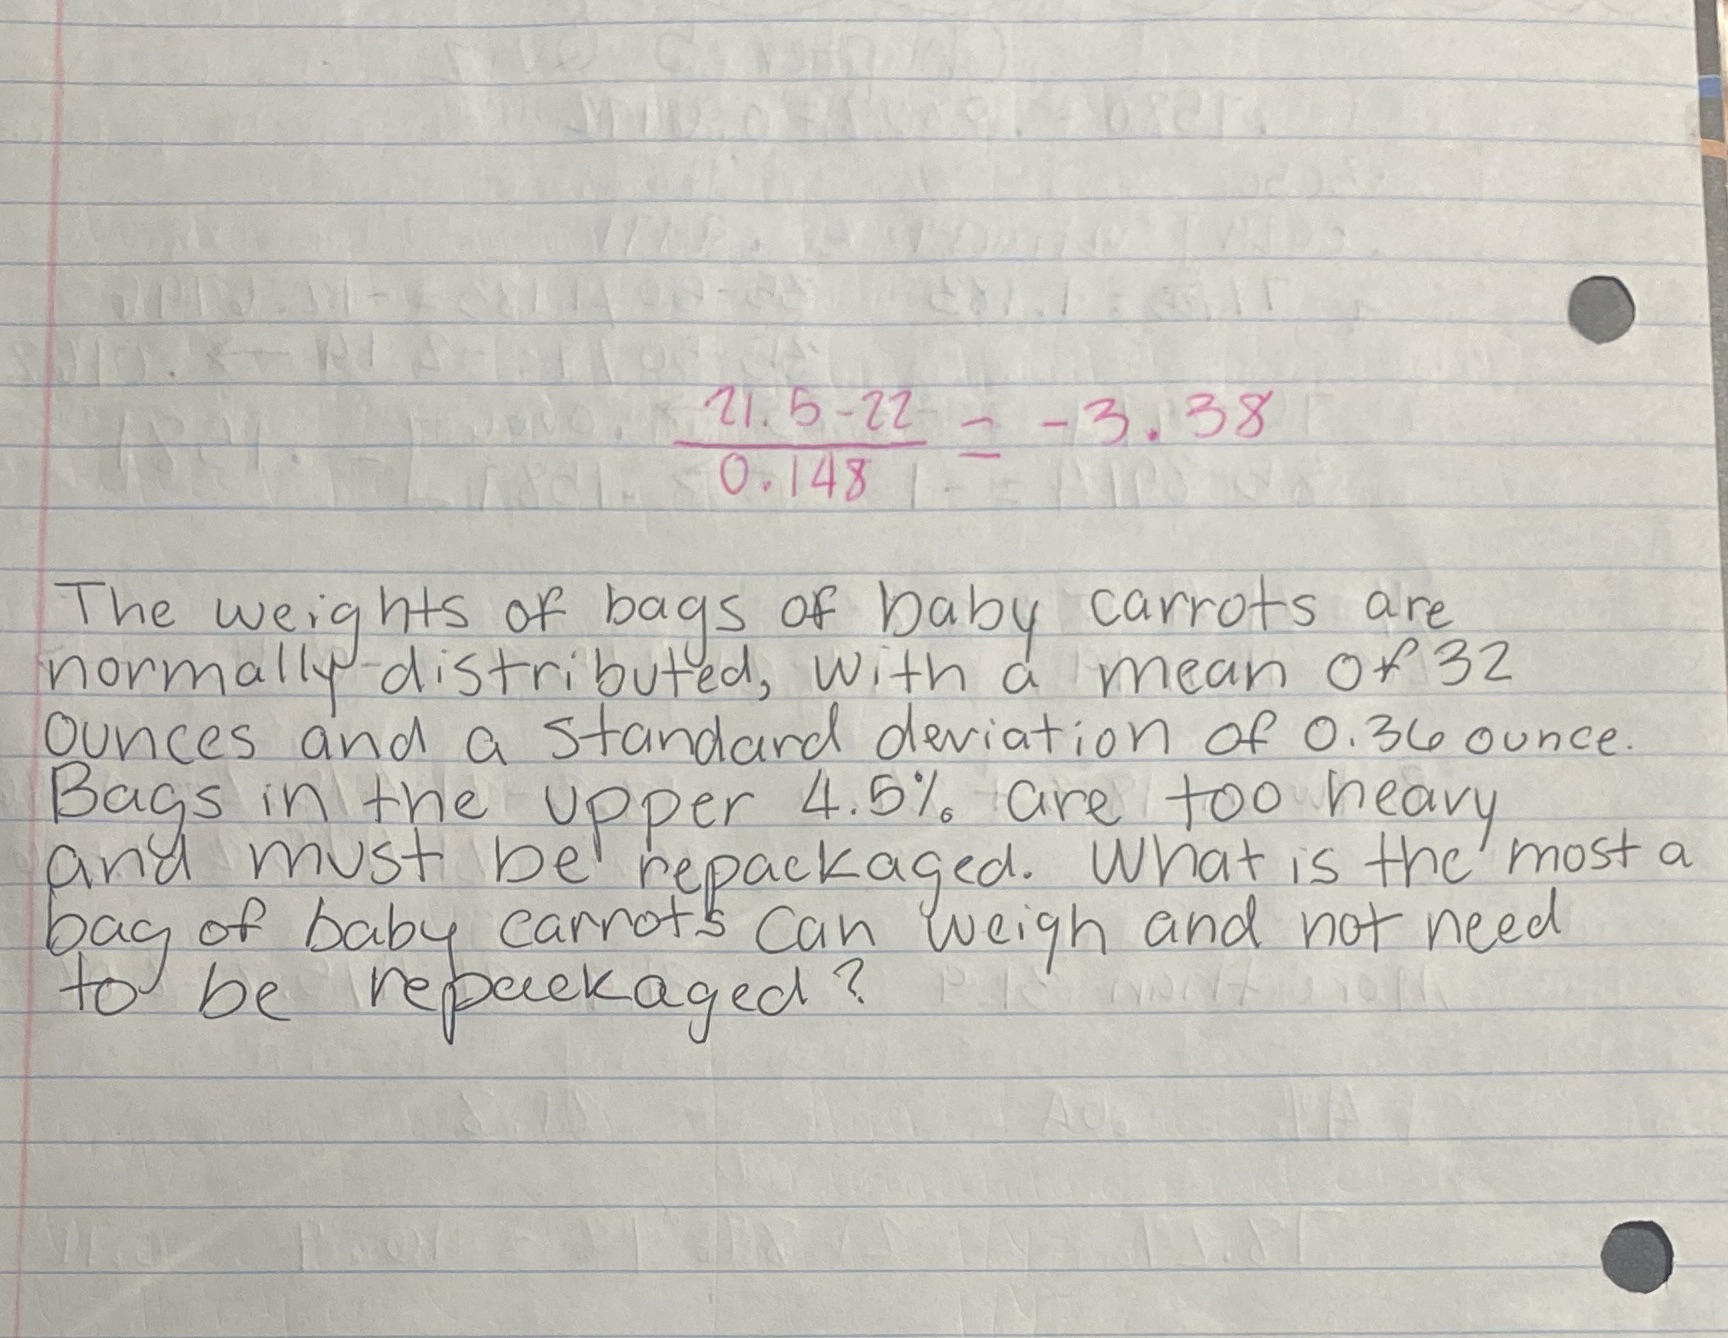 21.5-22
0.148
= -3.38
The weights of bags of baby carrots are
normally distributed, with a mean of 32
ounces and a standard deviation of 0.36 ounce.
Bags in the upper 4.5% are too heavy
and must be repackaged. What is the most a
bag of baby carrots can weigh and not need
to be repackaged?